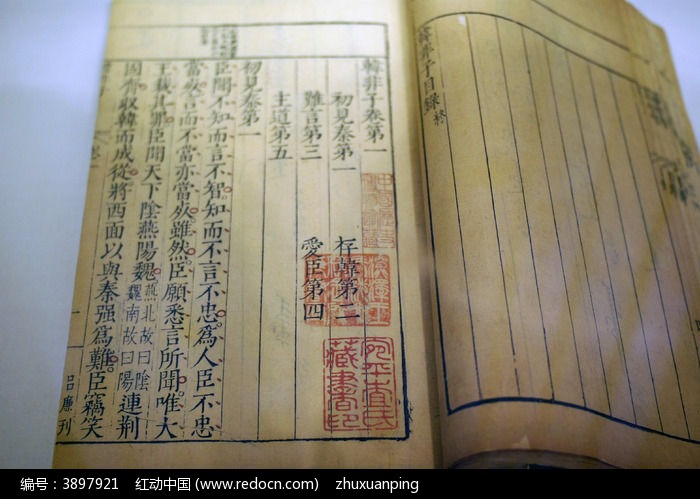 韓非子目錄終
韓非子卷第一
初見秦第一
存韓第二
難言第三
愛臣第四
主道第五
初見秦第一
臣聞不知而言不智知而不言不忠為人臣不忠
當死言而不當亦當死雖然臣願悉言所聞唯大
王裁其罪臣聞天下陰燕陽魏燕北故曰陰魏南故曰陽連荆
固齊收韓而成從將西面以與秦强為難臣竊笑
一
呂廉刊
宛平查氏
藏書印
编号：3897921 红动中国 (www.redocn.com) zhuxuanping